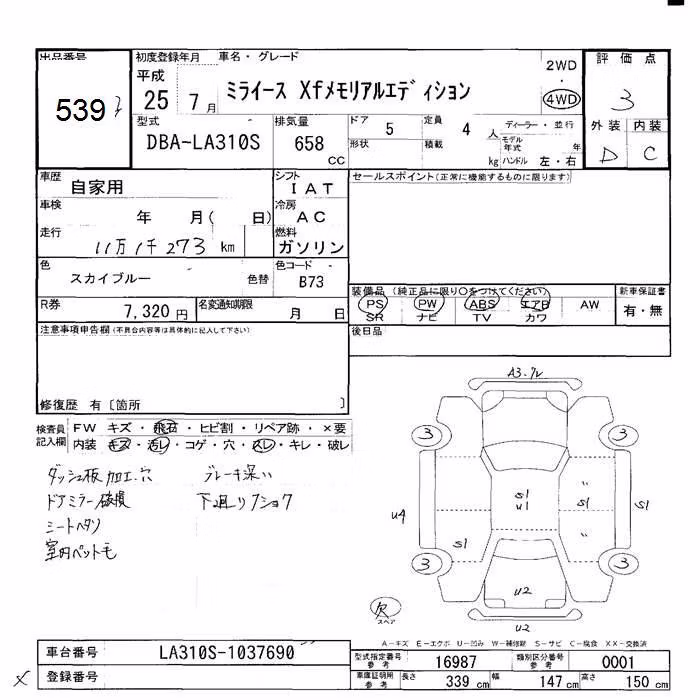 出品番号 初度登録年月 車名・グレード 評価点
539
平成 25年 7月 ミライース Xfメモリアルエディション 2WD・4WD 3
型式 排気量 ドア 5 定員 4人 ディーラー・並行 外装 内装
DBA-LA310S 658 CC 形状 積載 kg モデル年式 年 ハンドル 左・右 D C
車歴 自家用 シフト IAT セールスポイント(正常に機能するものに限ります)
車検 年 月( 日) 冷房 AC
走行 11万1千273 km 燃料 ガソリン
色 スカイブルー 色替 色コード B73
装備品 (純正品に限り○をつけてください) 新車保証書
R券 7,320円 名変通知期限 月 日 PS PW ABS エアB AW 有・無
SR ナビ TV カワ
注意事項申告欄(不具合内容等は具体的に記入して下さい) 後日品
修復歴 有〔箇所 〕
検査員記入欄 FW キズ・飛石・ヒビ割・リペア跡・×要
内装 キズ・汚レ・コゲ・穴・スレ・キレ・破レ
ダッシュ板加工.穴 ブレーキ深い
ドアミラー破損 下廻りクショク
シートヘタリ
室内ペット毛
A3.ワレ
3 3
S1
U1
S1
U4
S1
S1
3 3
U2
欠
スペア
U2
A-キズ E-エクボ U-凹み W-補修跡 S-サビ C-腐食 XX-交換済
車台番号 LA310S-1037690
型式指定番号 参考 16987 類別区分番号 参考 0001
登録番号
車庫証明用 参考 長さ 339 cm 幅 147 cm 高さ 150 cm